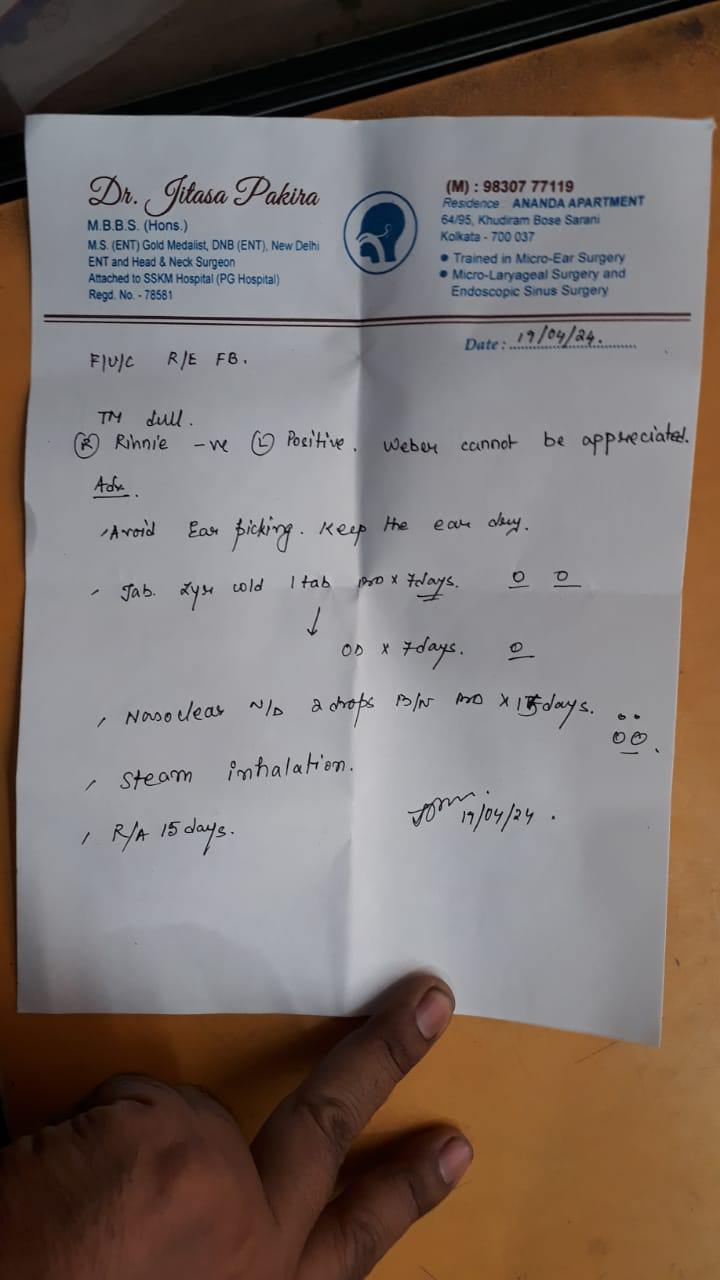 Dr. Jitasa Pakira
M.B.B.S. (Hons.)
M.S. (ENT) Gold Medalist, DNB (ENT), New Delhi
ENT and Head & Neck Surgeon
Attached to SSKM Hospital (PG Hospital)
Regd. No. - 78581
(M) : 98307 77119
Residence ANANDA APARTMENT
64/95, Khudiram Bose Sarani
Kolkata - 700 037
• Trained in Micro-Ear Surgery
• Micro-Laryageal Surgery and
Endoscopic Sinus Surgery
Date : 19/04/24.
F/U/C R/E FB.
TM dull.
(R) Rinnie -ve (L) Positive. Weber cannot be appreciated.
Adv.
Avoid Ear picking. Keep the ear dry.
Tab. cold 1 tab BD x 7days.
↓
OD x 7days.
Nasoclear N/D 2 drops B/N BD x 15days.
Steam inhalation.
R/A 15 days.
19/04/24.